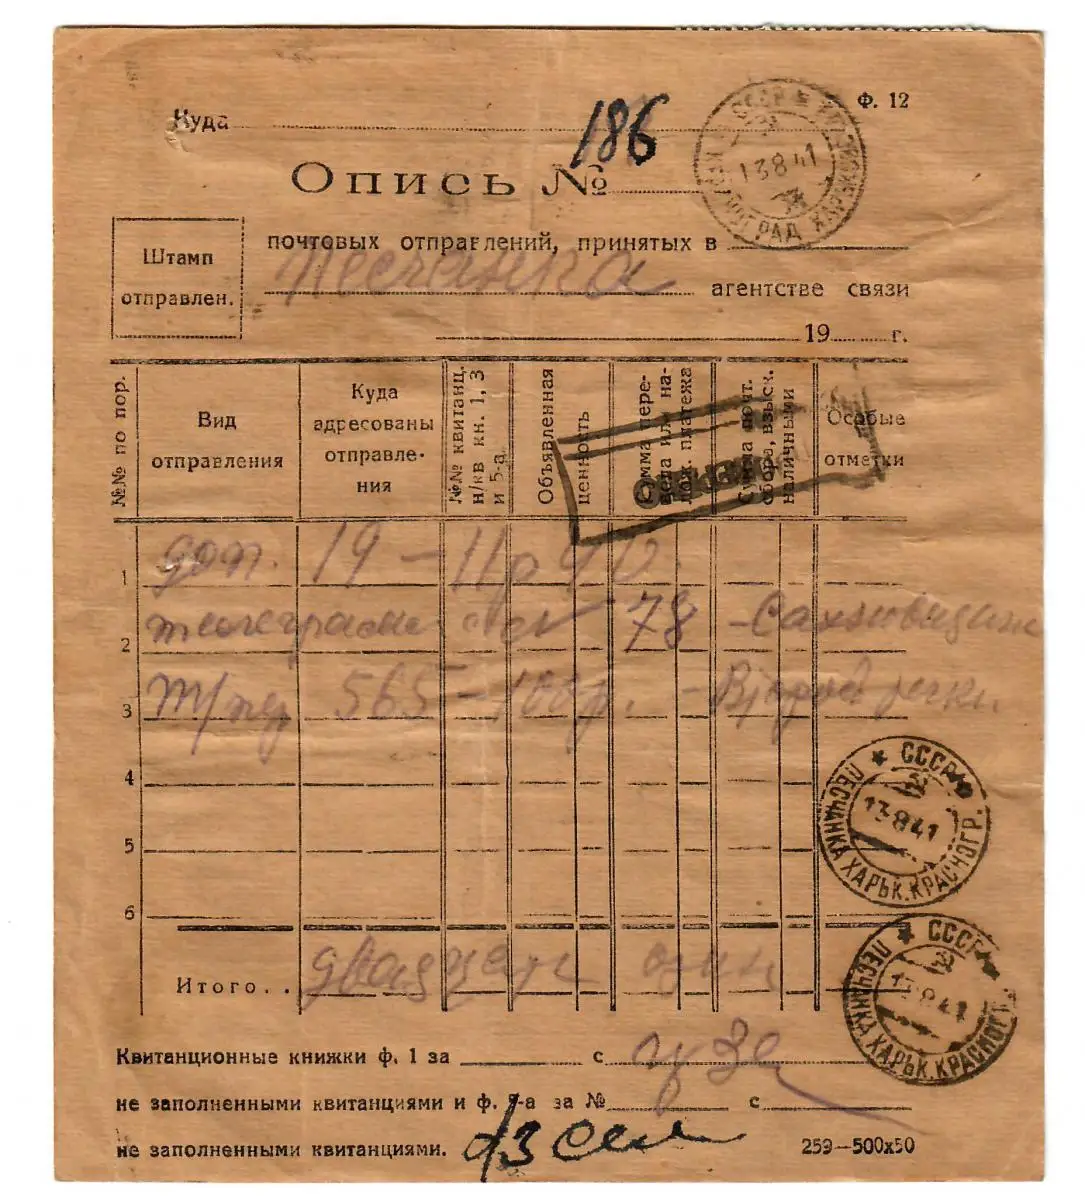 Ф. 12
Куда
Опись № 186
СССР КРАСНОГРАД ХАРЬКОВСК
13 8 41
Штамп отправлен.
почтовых отправлений, принятых в
Песчанка агентстве связи
19 г.
№№ по пор.
Вид отправления
Куда адресованы отправле-ния
№№ квитанц. н/кв кн. 1, 3 и 5-а
Объявленная ценность
Сумма пере-вода или на-лож. платежа
Сумма почт. сбора, взыск. наличными
Особые отметки
1 доп. 19 —
2 78 —
3 т/пер 565 — 100 р. —
4
5
6
Итого.. двадцать один
СССР ПЕСЧАНКА ХАРЬК. КРАСНОГР.
13 8 41
СССР ПЕСЧАНКА ХАРЬК. КРАСНОГР.
13 8 41
Квитанционные книжки ф. 1 за с
не заполненными квитанциями и ф. -а за № с
не заполненными квитанциями.
259—500х50